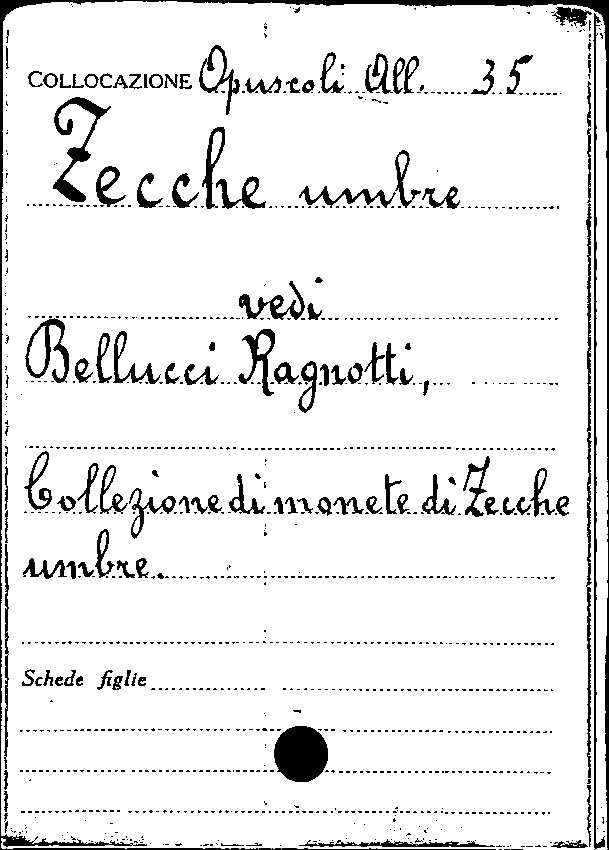 COLLOCAZIONE Opuscoli All. 35
Zecche umbre
vedi
Bellucci Ragnotti,
Collezione di monete di Zecche
umbre.
Schede figlie